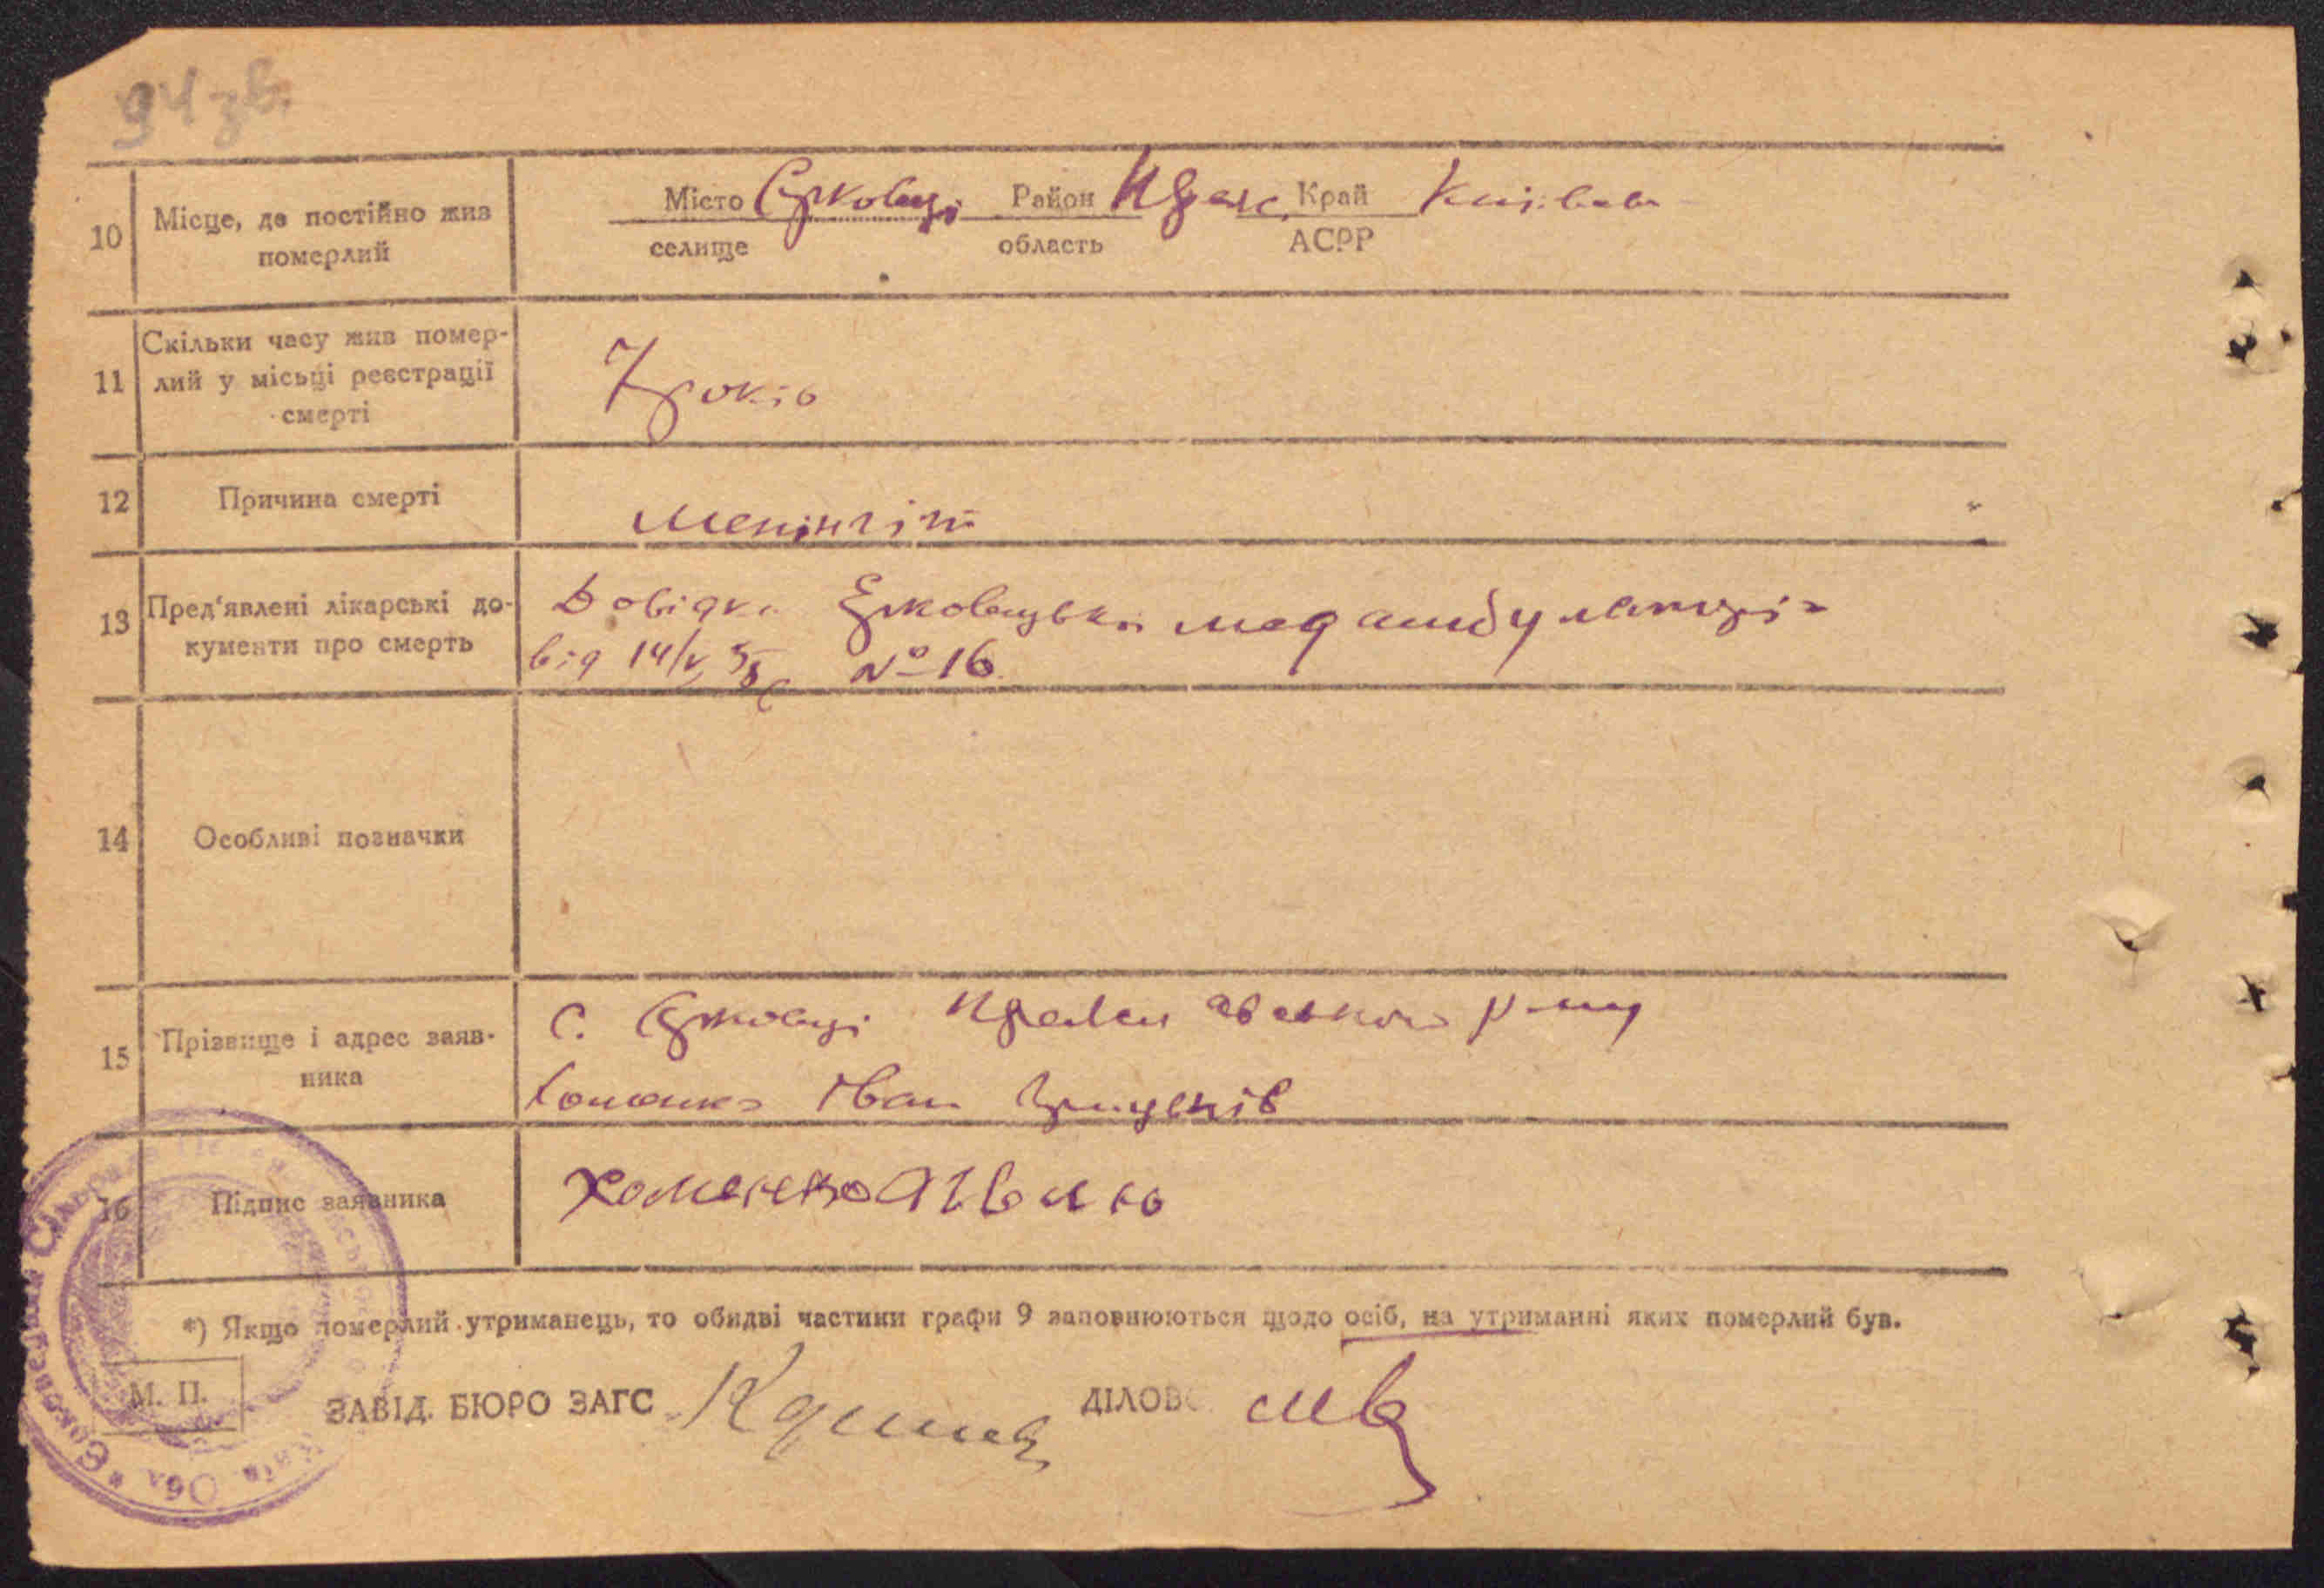 94 зв.
10 Місце, де постійно жив померлий
Місто Єрковці Район Край Київська
селище область АСРР
11 Скільки часу жив помер-
лий у місьці реєстрації
смерті
7 років
12 Причина смерті
Менінгіт
13 Пред'явлені лікарські до-
кументи про смерть
Довідка Єрковецької мед амбулаторії
від 14/V № 16
14 Особливі позначки
15 Прізвище і адрес заяв-
ника
с. Єрковці р-ну
Хоменко Іван
16 Підпис заявника
Хоменко
*) Якщо померлий утриманець, то обидві частини графи 9 заповнюються щодо осіб, на утриманні яких померлий був.
М. П.
ЗАВІД. БЮРО ЗАГС ДІЛОВ